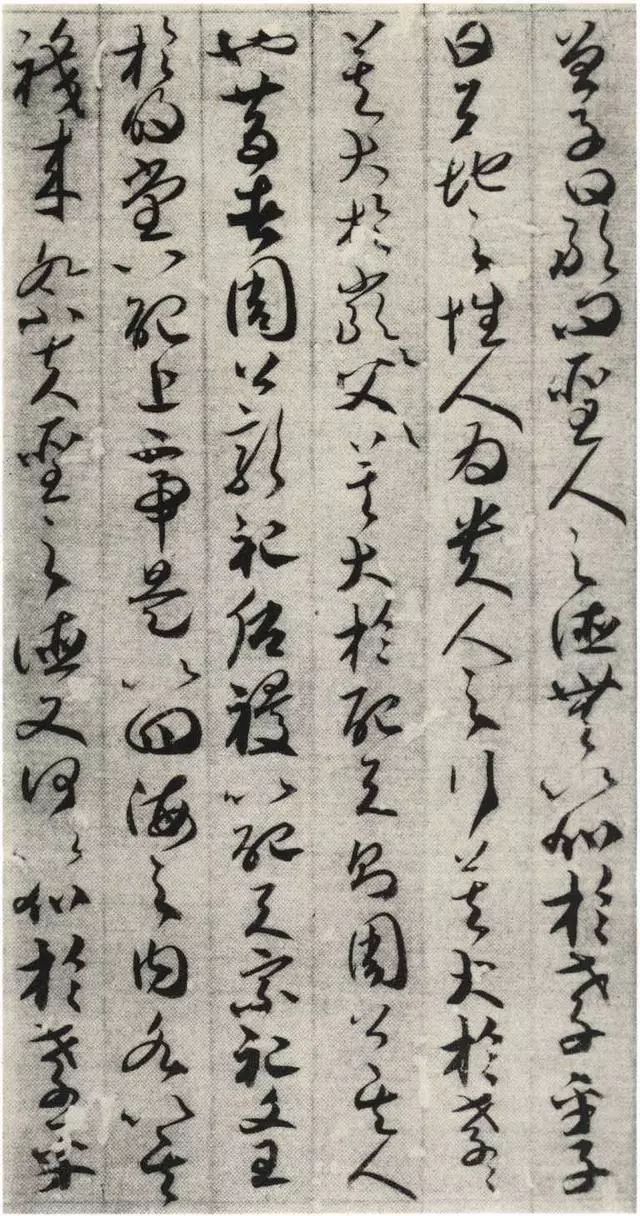 曾子曰敢問聖人之德無以加於孝乎子
曰天地之性人為貴人之行莫大於孝〻
莫大於嚴〻父〻莫大於配天則周公其人
也昔者周公郊祀后稷以配天宗祀文王
於明堂以配上帝是以四海之內各以其
職來祭夫聖之德又何以加於孝乎